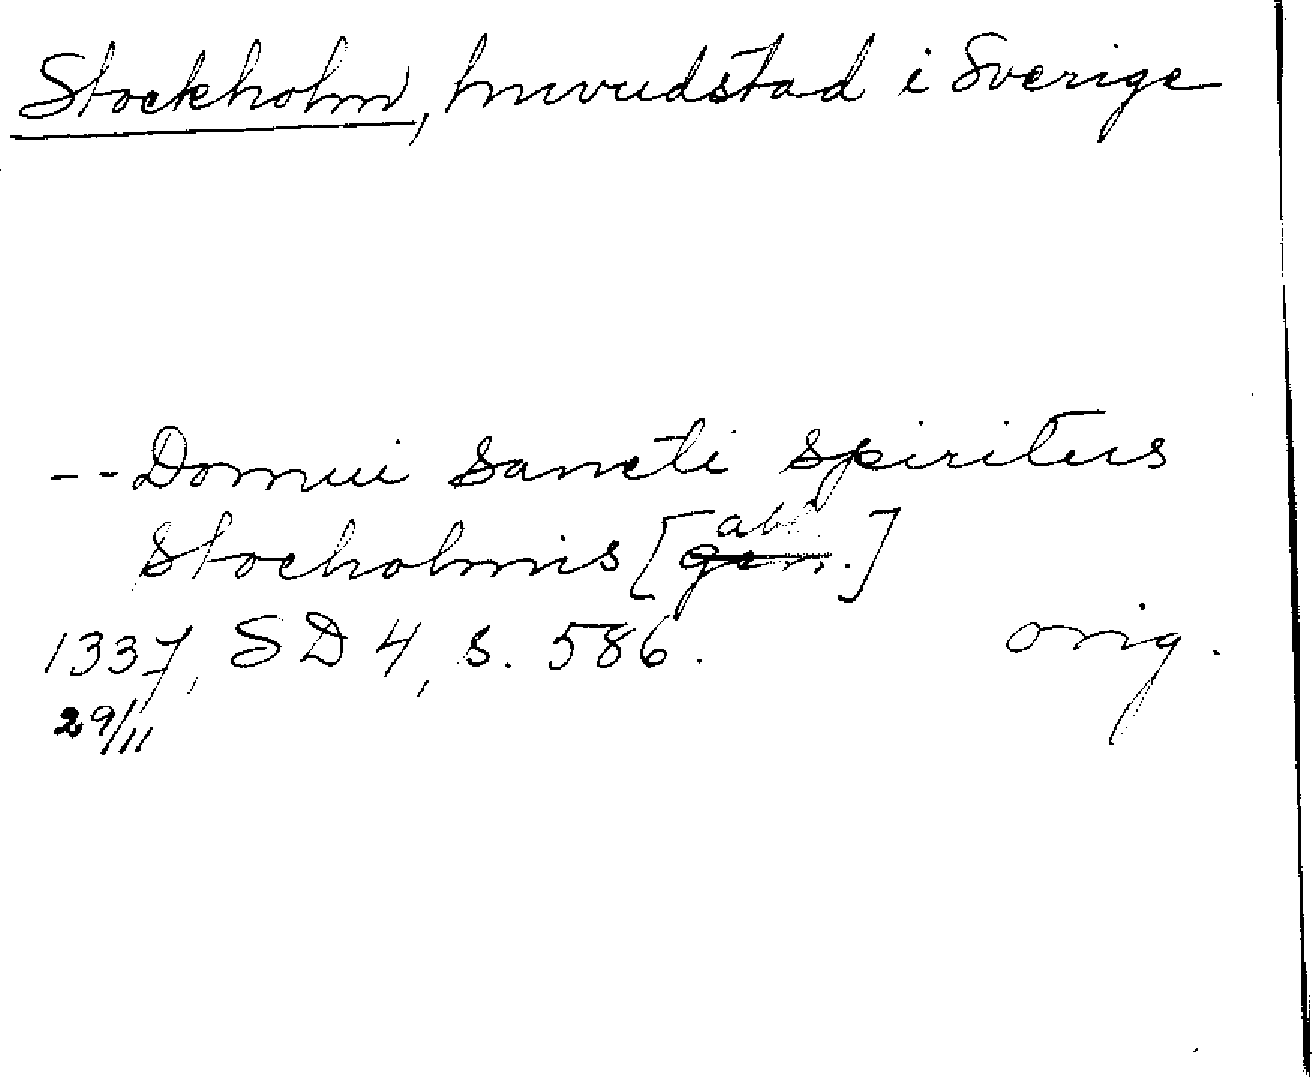 Stockholm, huvudstad i Sverige
-- Domui sancti spiritus
abl.
Stocholmis [gen.]
1337, SD 4, s. 586. orig.
29/11